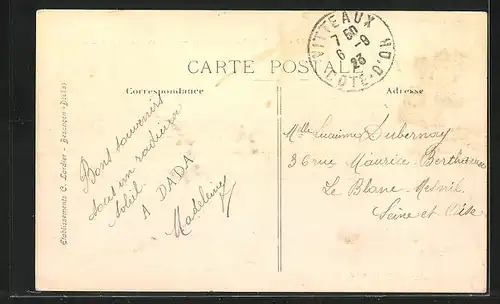 VITTEAUX
7 50
6 -9
23
CÔTE-D'OR
CARTE POSTALE
Correspondance
Adresse
Etablissements C. Lardier - Besançon (Doubs)
Bons souvenirs
sous un radieux
soleil.
A DADA
Madeleine
Mlle Lucienne Dubernay
36 rue Maurice Bertheaux
Le Blanc Mesnil
Seine et Oise